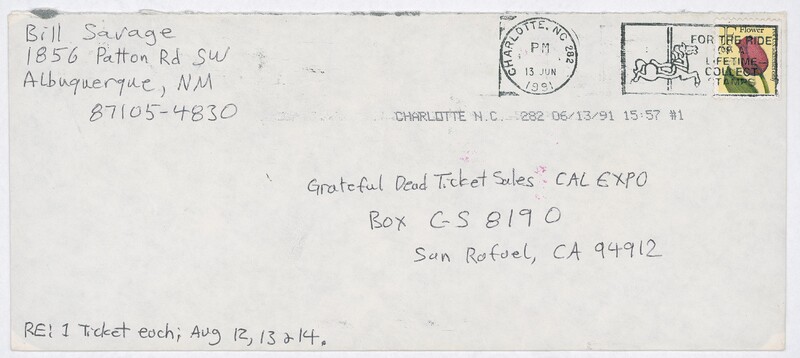 Bill Savage
1856 Patton Rd SW
Albuquerque, NM
87105-4830
CHARLOTTE, NC 282
PM
13 JUN
1991
FOR THE RIDE
OF A
LIFETIME
COLLECT
STAMPS
Flower
CHARLOTTE N.C. 282 06/13/91 15:57 #1
Grateful Dead Ticket Sales CAL EXPO
Box G-S 8190
San Rafael, CA 94912
RE: 1 Ticket each; Aug 12, 13 & 14.